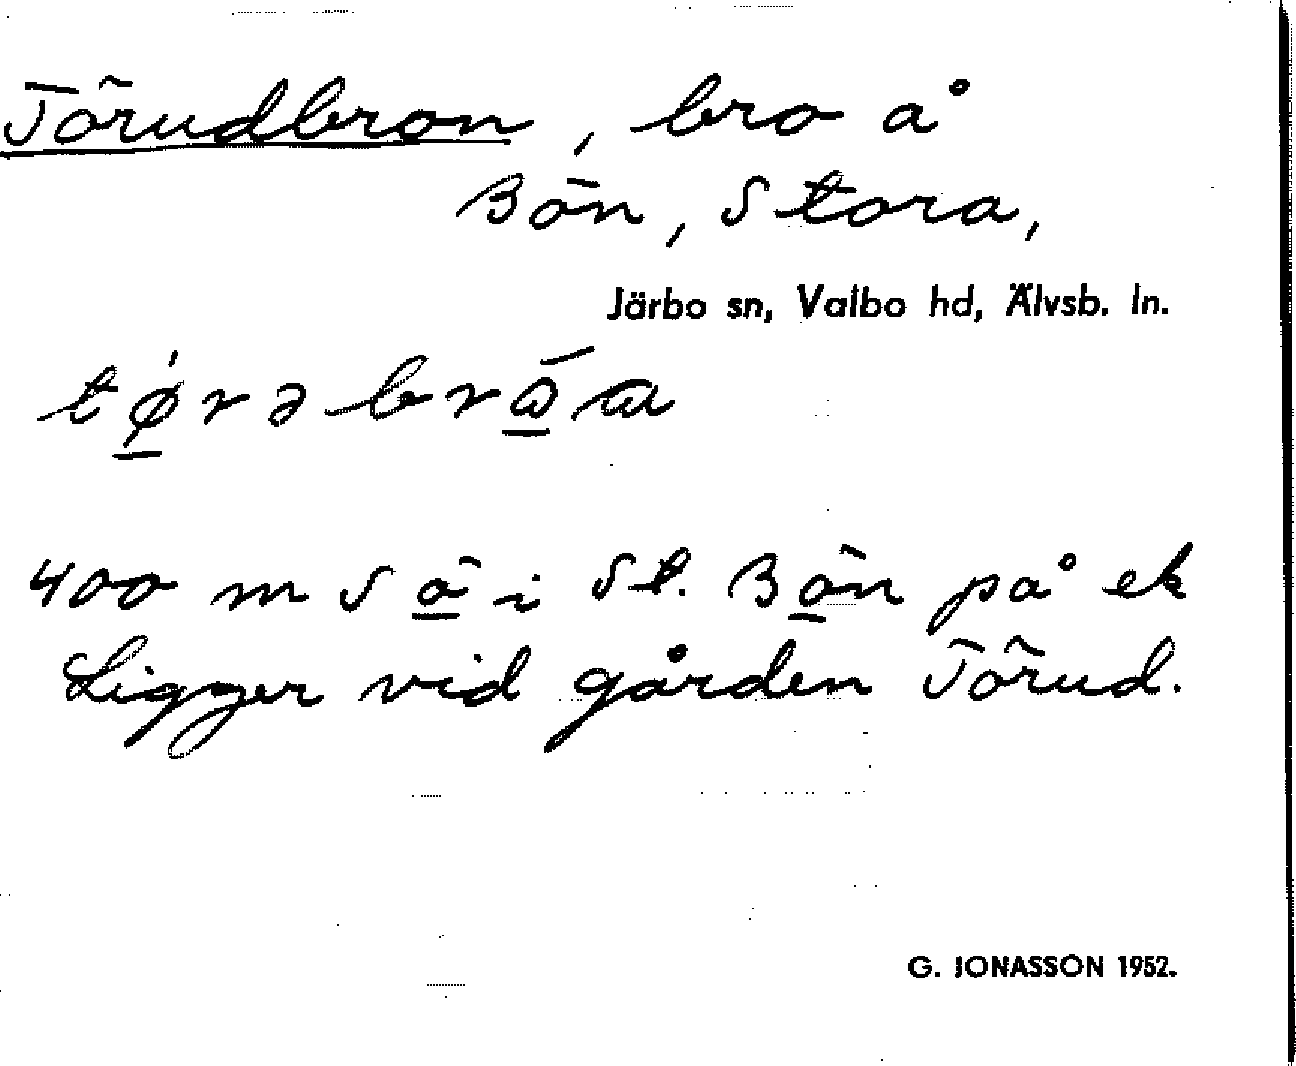 Törudbron, bro å
Bön, Stora,
Järbo sn, Valbo hd, Älvsb. ln.
400 m S ö i St. Bön på ek
Ligger vid gården Törud.
G. JONASSON 1952.